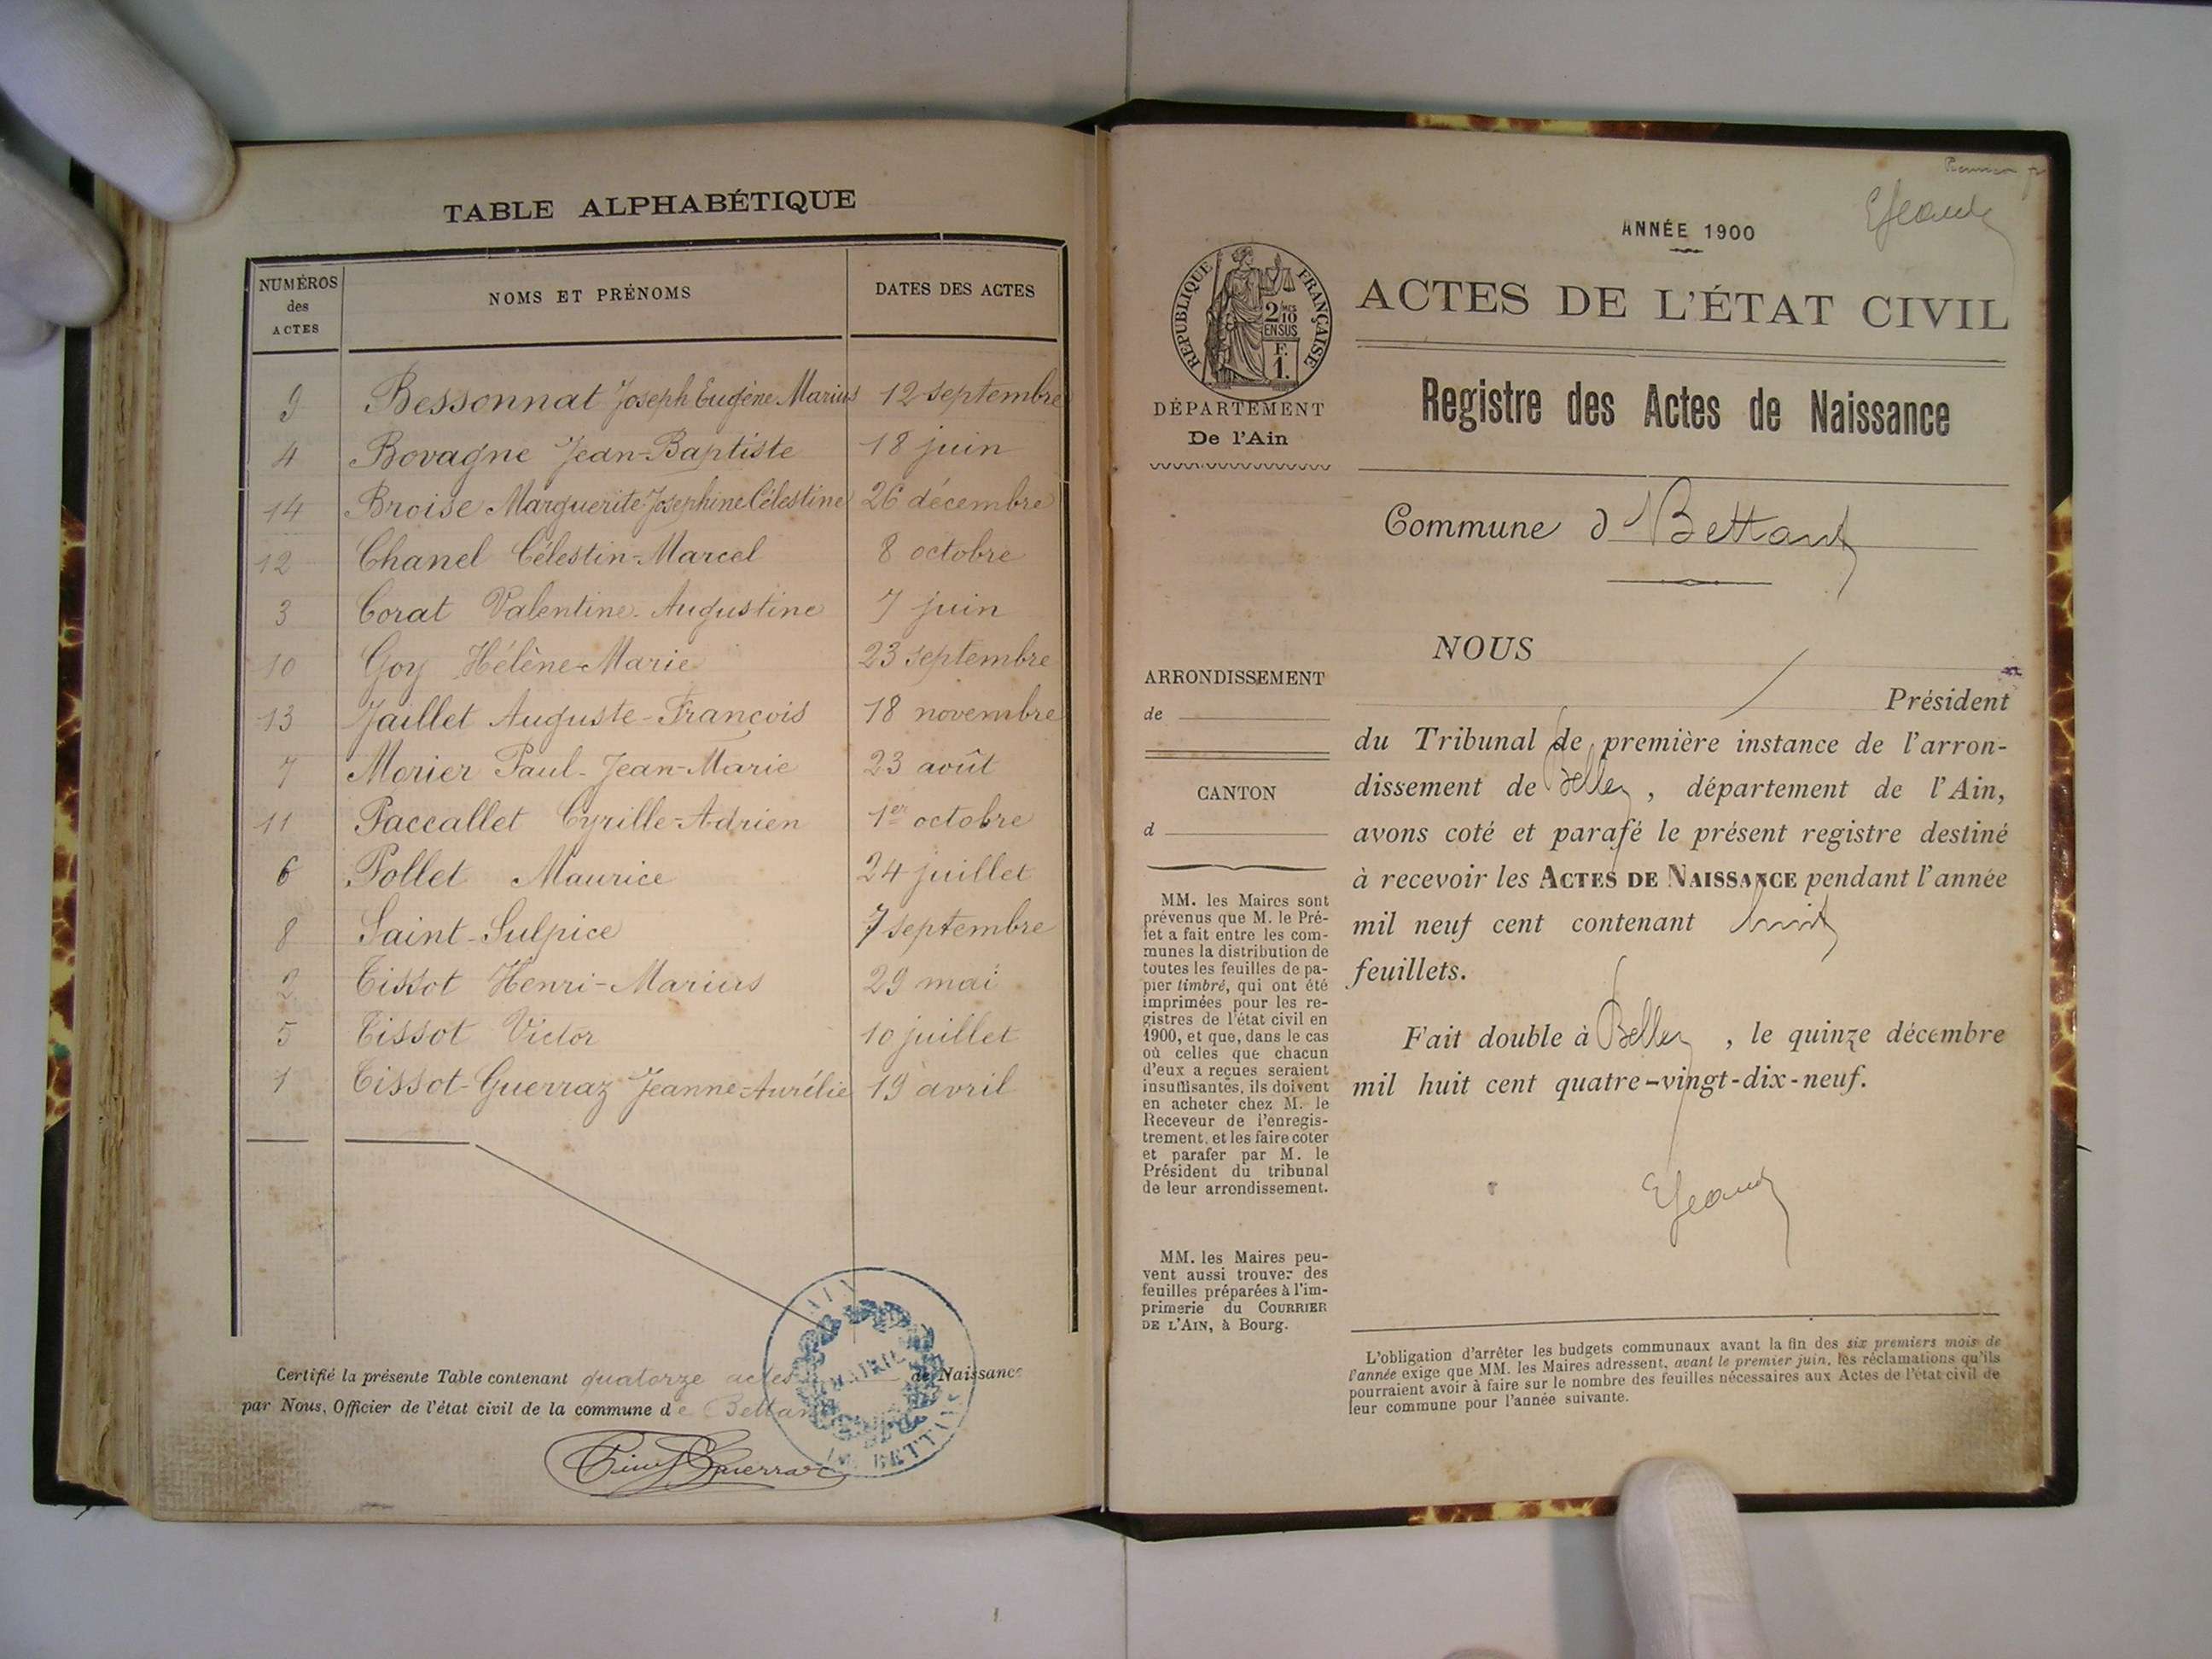 TABLE ALPHABÉTIQUE
NUMÉROS des ACTES NOMS ET PRÉNOMS DATES DES ACTES
9 Bessonnat Joseph Eugène Marius 12 septembre
4 Bovagne Jean-Baptiste 18 juin
14 Broise Marguerite Joséphine Célestine 26 décembre
12 Chanel Célestin-Marcel 8 octobre
3 Corat Valentine-Augustine 7 juin
10 Goy Hélène-Marie 23 septembre
13 Jaillet Auguste-François 18 novembre
7 Morier Paul-Jean-Marie 23 août
11 Paccallet Cyrille-Adrien 1er octobre
6 Pollet Maurice 24 juillet
8 Saint-Sulpice 7 septembre
2 Tissot Henri-Marius 29 mai
5 Tissot Victor 10 juillet
1 Tissot-Guerraz Jeanne-Aurélie 19 avril
Certifié la présente Table contenant quatorze actes de Naissance
par Nous, Officier de l'état civil de la commune de Bettant
AIN
MAIRIE
BETTANT
ANNÉE 1900
RÉPUBLIQUE FRANÇAISE
2/10
EN SUS
F.
1.
ACTES DE L'ÉTAT CIVIL
DÉPARTEMENT
De l'Ain
Registre des Actes de Naissance
Commune d Bettant
ARRONDISSEMENT
de
CANTON
d
MM. les Maires sont
prévenus que M. le Pré-
fet a fait entre les com-
munes la distribution de
toutes les feuilles de pa-
pier timbré, qui ont été
imprimées pour les re-
gistres de l'état civil en
1900, et que, dans le cas
où celles que chacun
d'eux a reçues seraient
insuffisantes, ils doivent
en acheter chez M. le
Receveur de l'enregis-
trement, et les faire coter
et parafer par M. le
Président du tribunal
de leur arrondissement.
MM. les Maires peu-
vent aussi trouver des
feuilles préparées à l'im-
primerie du COURRIER
DE L'AIN, à Bourg.
NOUS
Président
du Tribunal de première instance de l'arron-
dissement de Belley, département de l'Ain,
avons coté et parafé le présent registre destiné
à recevoir les ACTES DE NAISSANCE pendant l'année
mil neuf cent contenant huit
feuillets.
Fait double à Belley, le quinze décembre
mil huit cent quatre-vingt-dix-neuf.
L'obligation d'arrêter les budgets communaux avant la fin des six premiers mois de
l'année exige que MM. les Maires adressent, avant le premier juin, les réclamations qu'ils
pourraient avoir à faire sur le nombre des feuilles nécessaires aux Actes de l'état civil de
leur commune pour l'année suivante.